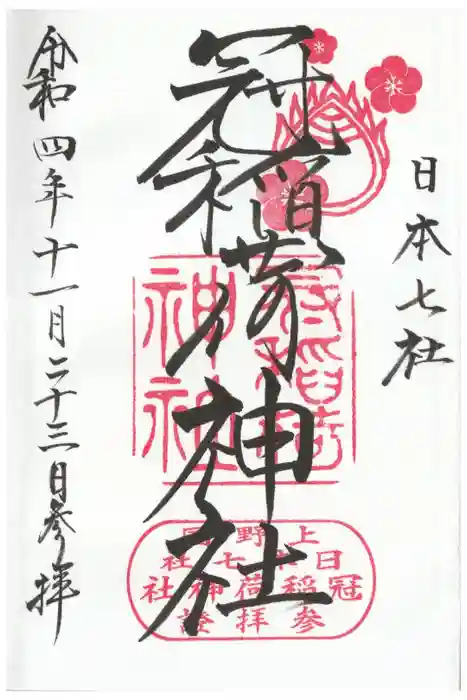 日本七社
冠稲荷神社
令和四年十一月二十三日参拝
冠稲荷神社
上野国
日本七社
冠稲荷神社
参拝證